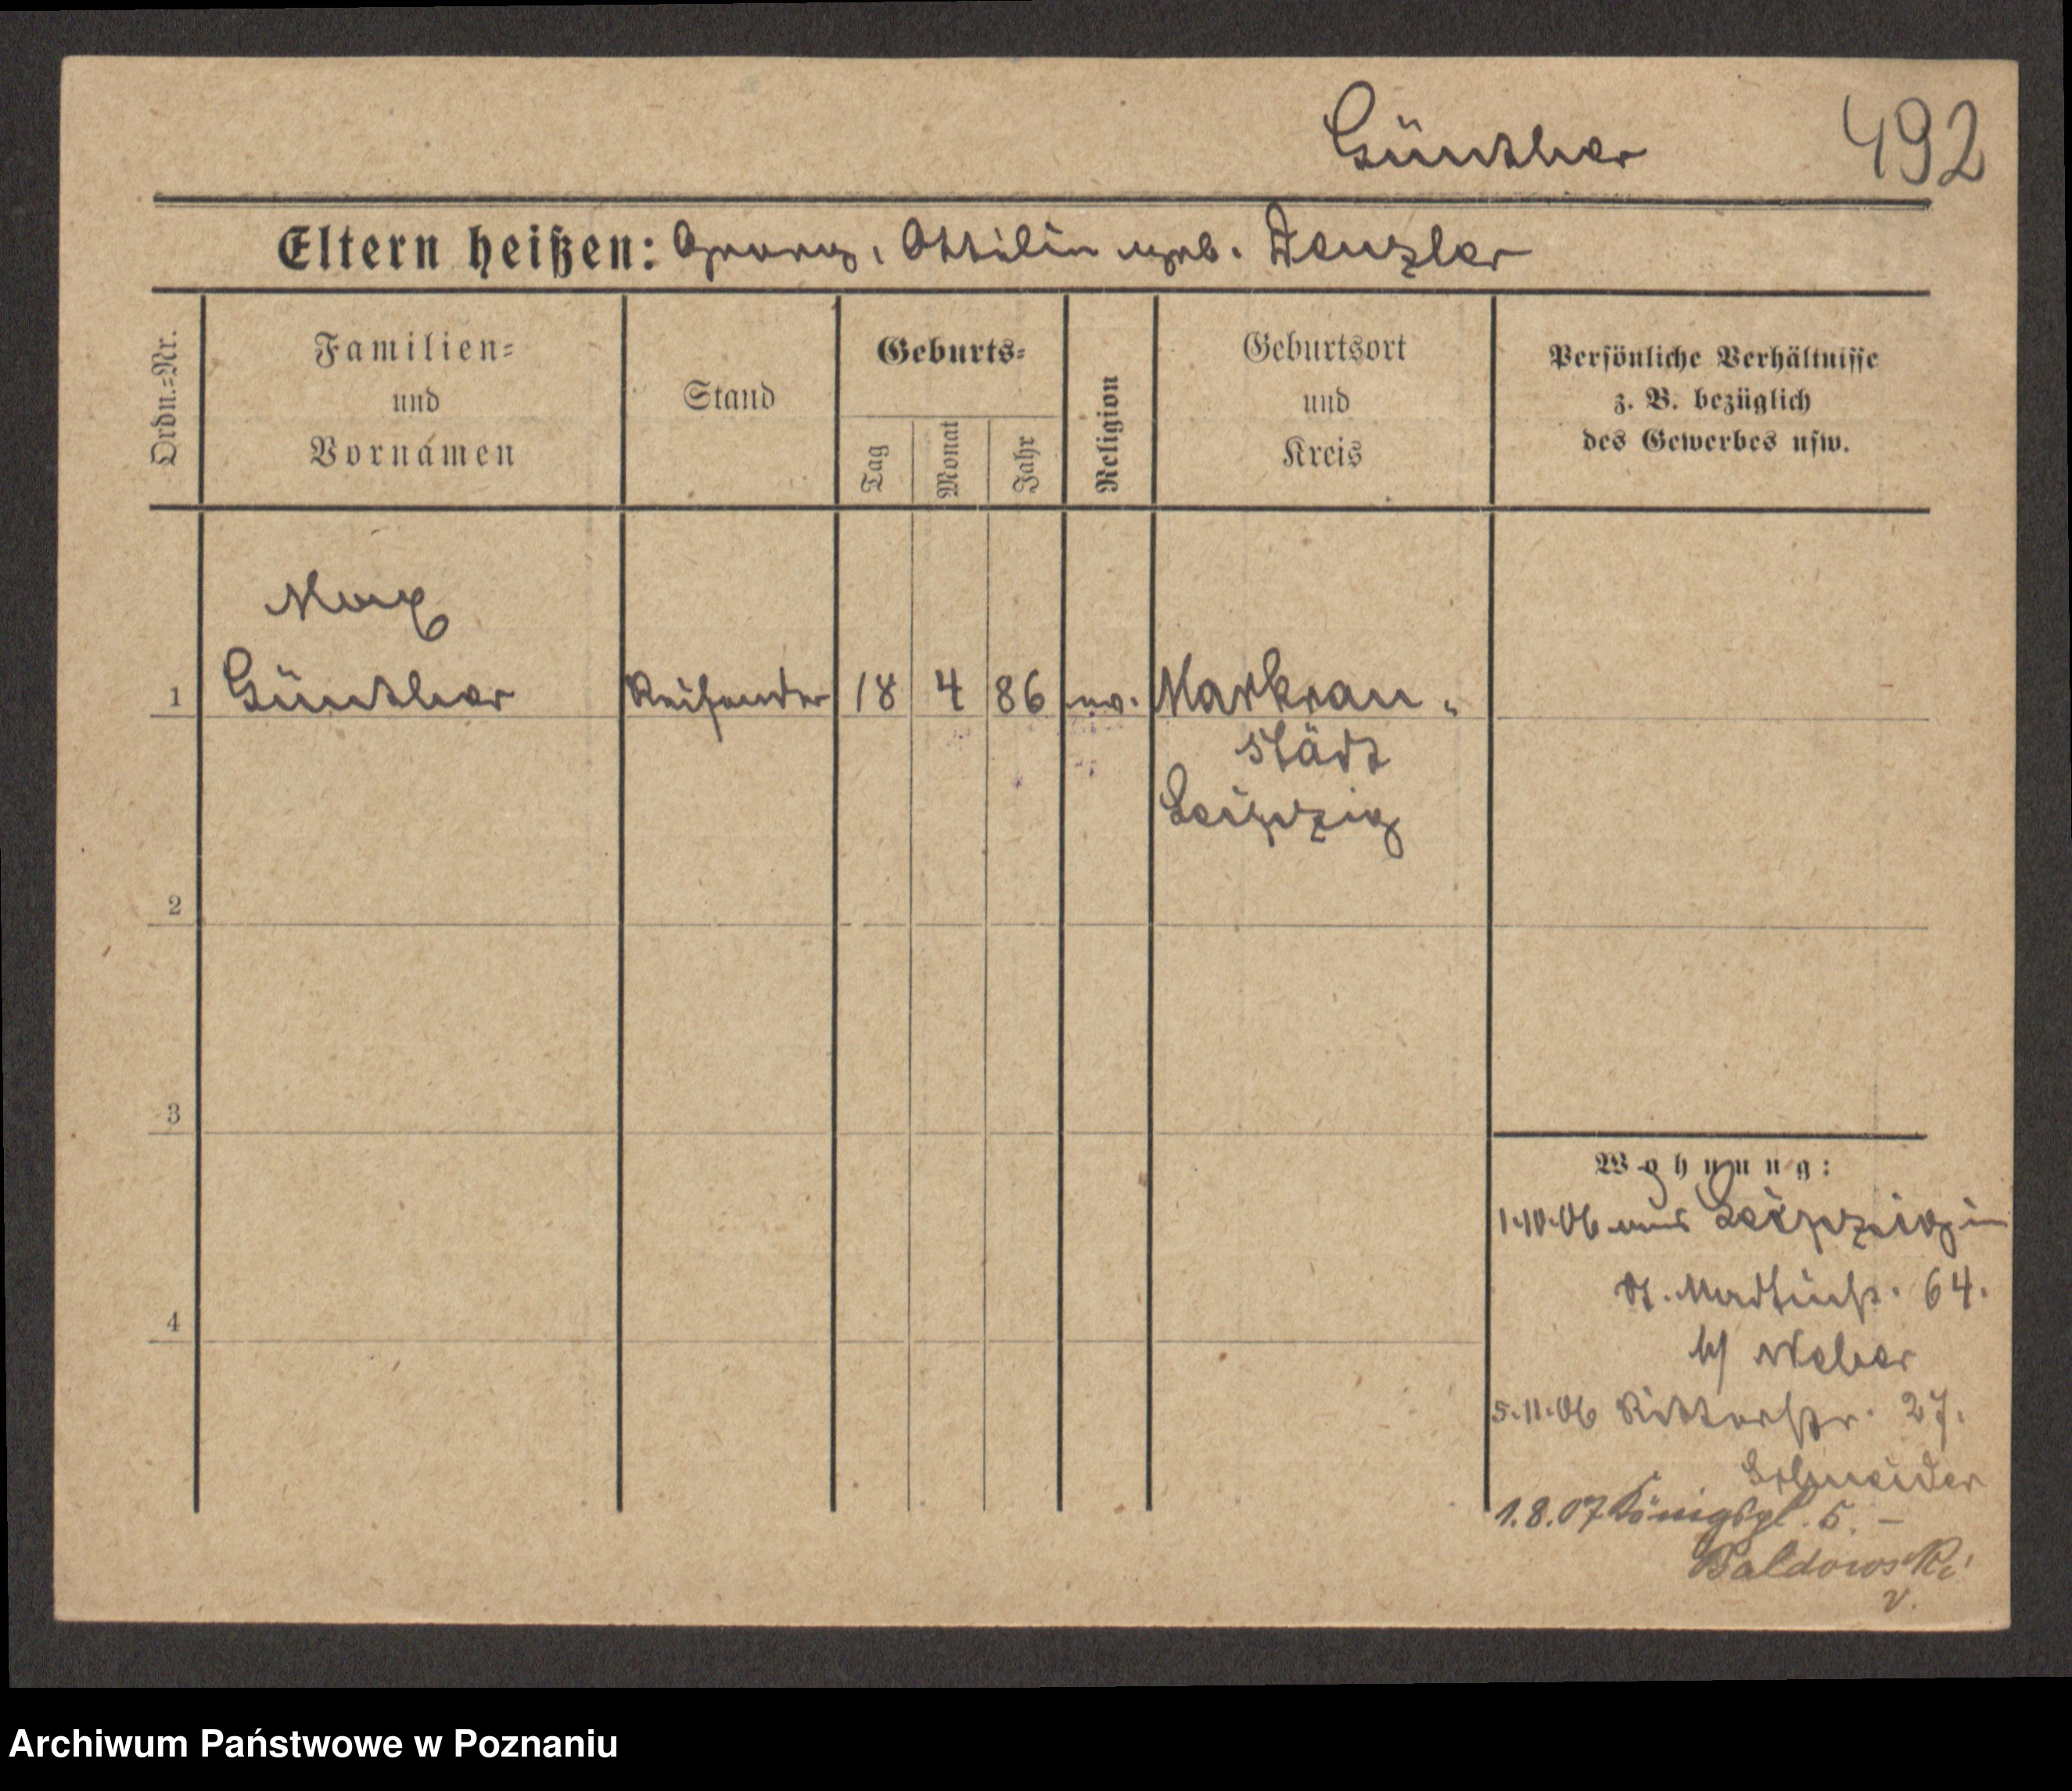 Günther 492
Eltern heißen: Georg, Ottilie geb. Denzler
Ordn.=Nr.
Familien=
und
Vornamen
Stand
Geburts=
Tag
Monat
Jahr
Religion
Geburtsort
und
Kreis
Persönliche Verhältnisse
z. B. bezüglich
des Gewerbes usw.
Max
1 Günther Reisender 18 4 86 ev. Markran-
städt
Leipzig
2
3
4
Wohnung:
1.10.06 aus Leipzig in
St. Martinstr. 64.
b/ Weber
5.11.06 Ritterstr. 27.
Schneider
1.8.07 Königspl. 5. -
Baldowski
v.
Archiwum Państwowe w Poznaniu